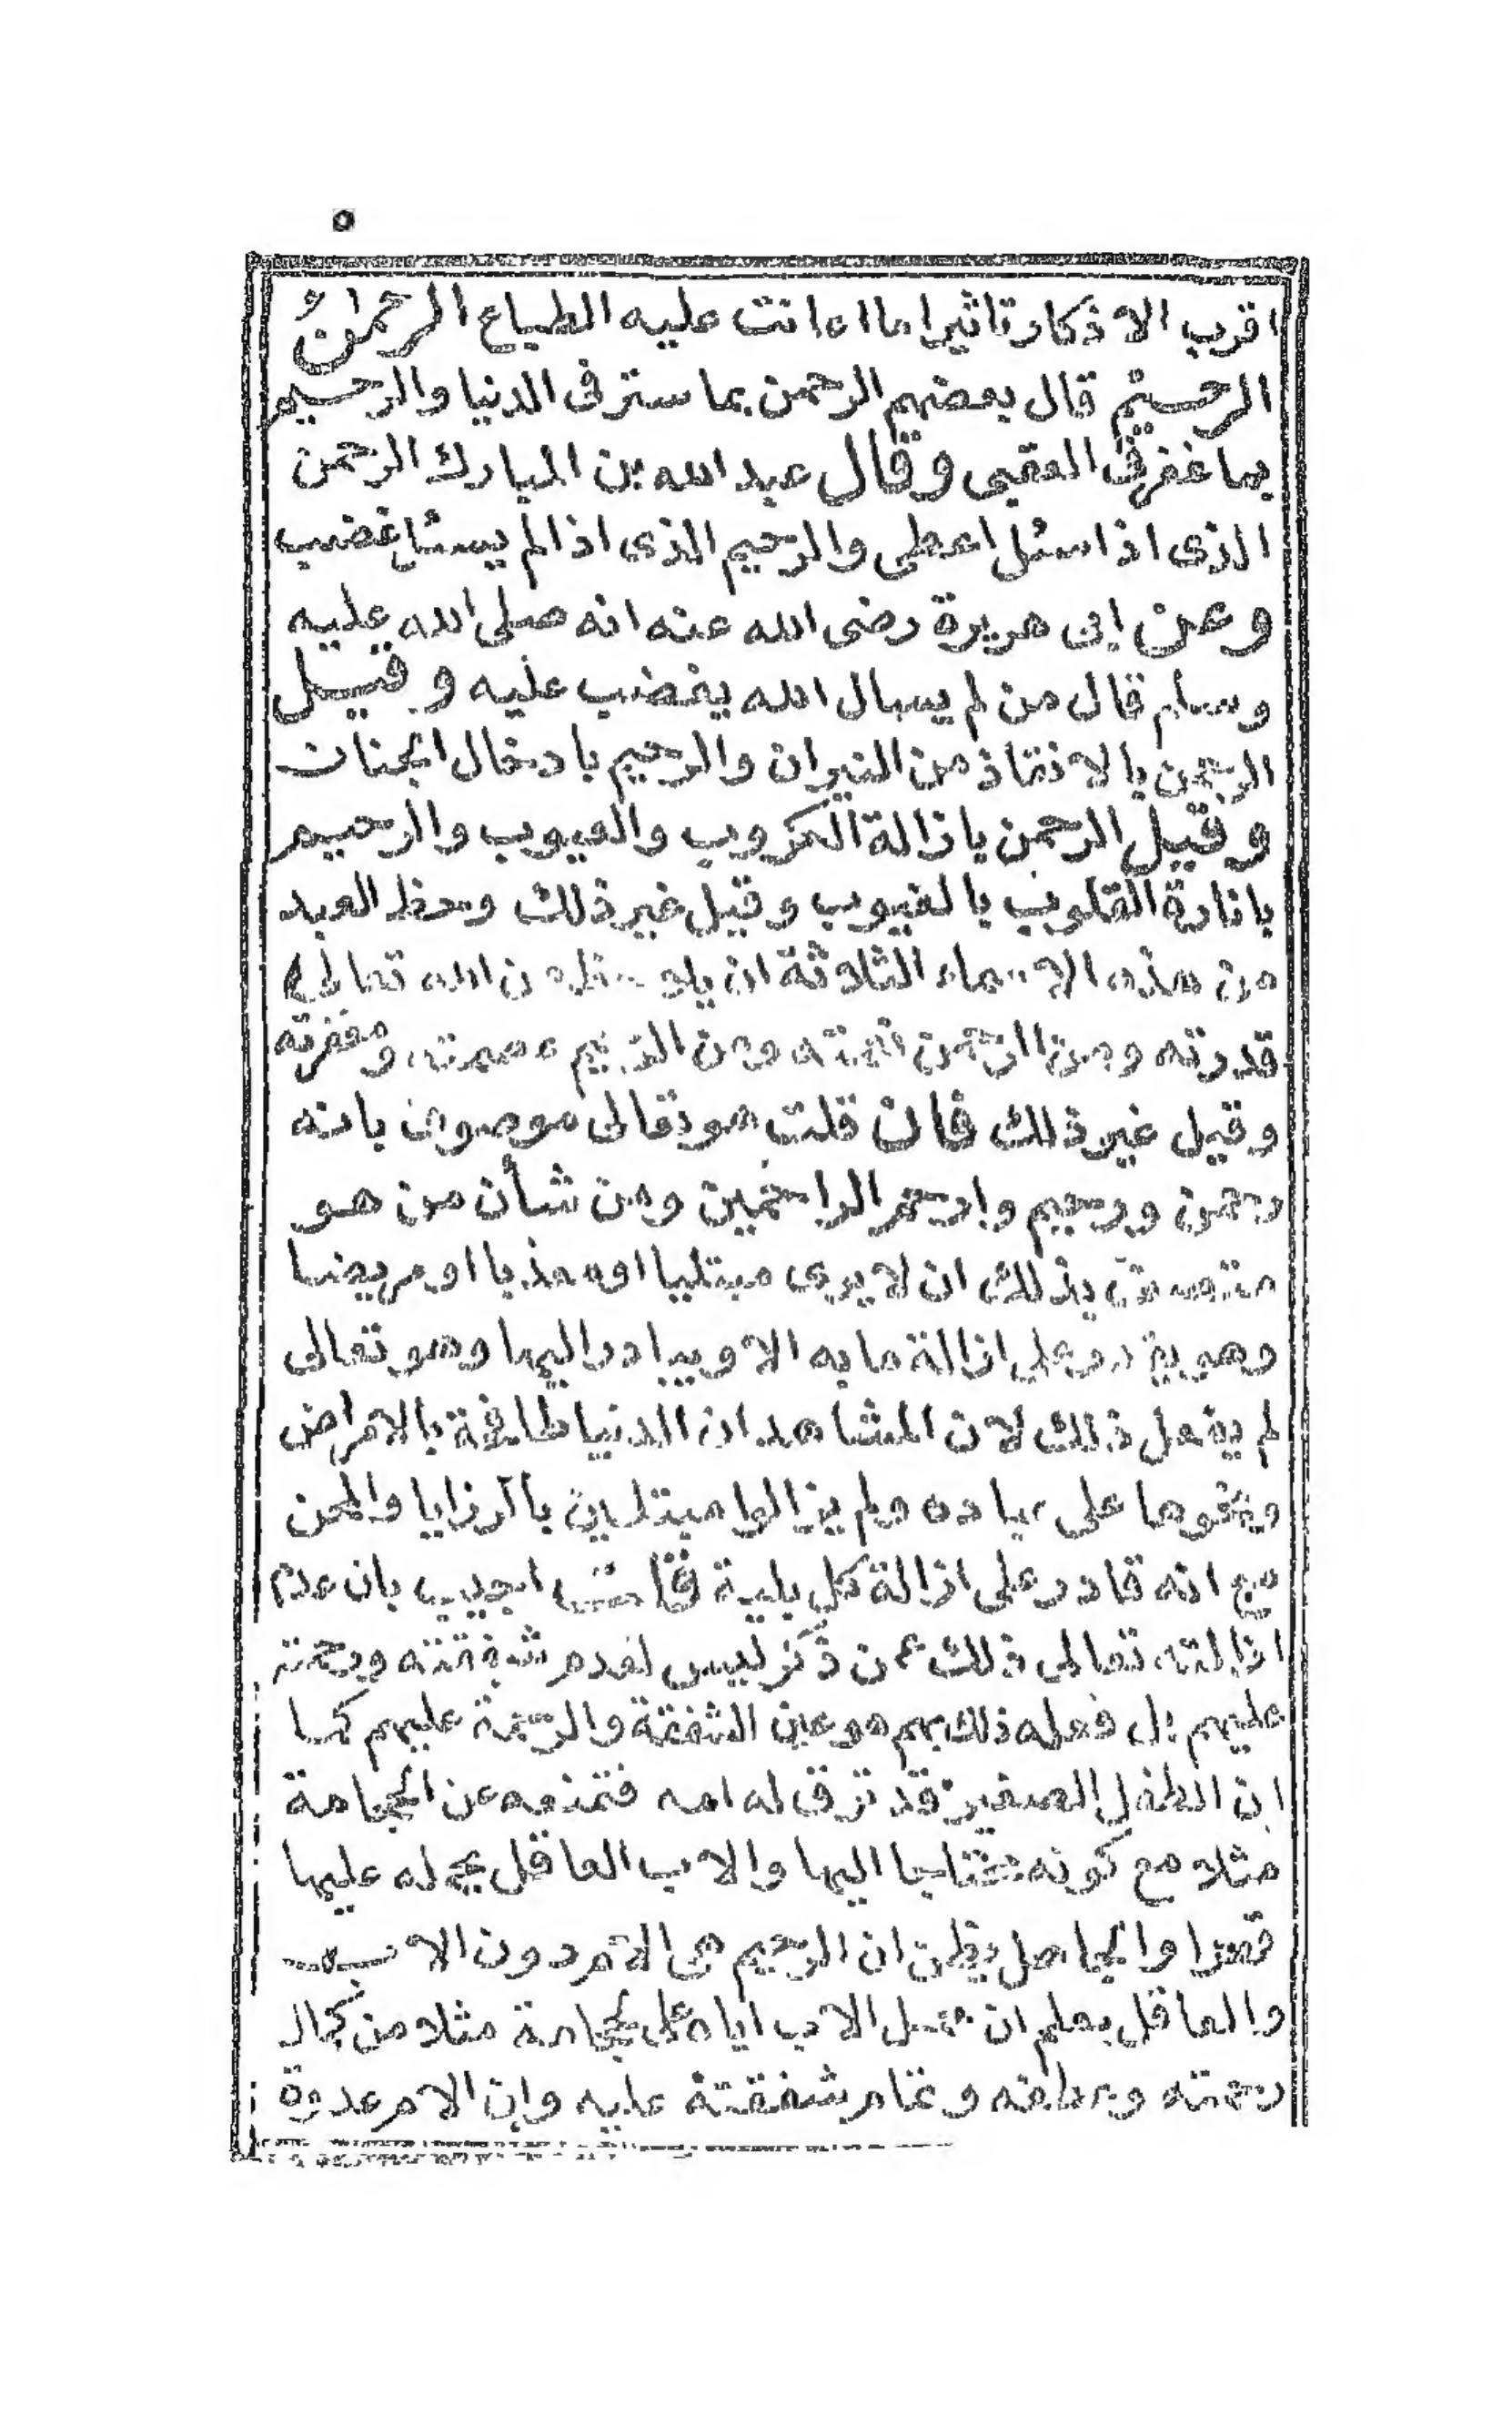 ٥
اقرب الاذكار تاثيرا ما اعانت عليه الطباع الرحمن
الرحيم قال بعضهم الرحمن بما ستر فى الدنيا والرحيم
بما غفر فى العقبى وقال عبد الله بن المبارك الرحمن
الذى اذا سئل اعطى والرحيم الذى اذا لم يسئل غضب
وعن ابى هريرة رضى الله عنه انه صلى الله عليه
وسلم قال من لم يسال الله يغضب عليه وقيل
الرحمن بالانقاذ من النيران والرحيم بادخال الجنات
وقيل الرحمن بازالة الكروب والعيوب والرحيم
بانارة القلوب بالغيوب وقيل غير ذلك وحظ العبد
من هذه الاسماء الثلاثة ان يلاحظ من الله تعالى
قدرته ومن الرحمن نعمته ومن الرحيم عصمته ومغفرته
وقيل غير ذلك فان قلت هو تعالى موصوف بانه
رحمن ورحيم وارحم الراحمين ومن شأن من هو
متصف بذلك ان لا يرى مبتليا او معذبا او مريضا
وهو يقدر على ازالة ما به الا ويبادر اليها وهو تعالى
لم يفعل ذلك لان المشاهد ان الدنيا طافحة بالامراض
ونحوها على عباده ولم يزالوا مبتلين بالرزايا والمحن
مع انه قادر على ازالة كل بلية قلت اجيب بان عدم
ازالته تعالى ذلك عمن ذكر ليس لعدم شفقته ورحمته
عليهم بل فعله ذلك بهم هو عين الشفقة والرحمة عليهم كما
ان الطفل الصغير قد ترق له امه فتمنعه عن الحجامة
مثلا مع كونه محتاجا اليها والاب العاقل يحمله عليها
قهرا والجاهل يظن ان الرحيم هى الام دون الاب
والعاقل يعلم ان حمل الاب اياه على الحجامة مثلا من كمال
رحمته وعطفه وتمام شفقته عليه وان الام عدوة